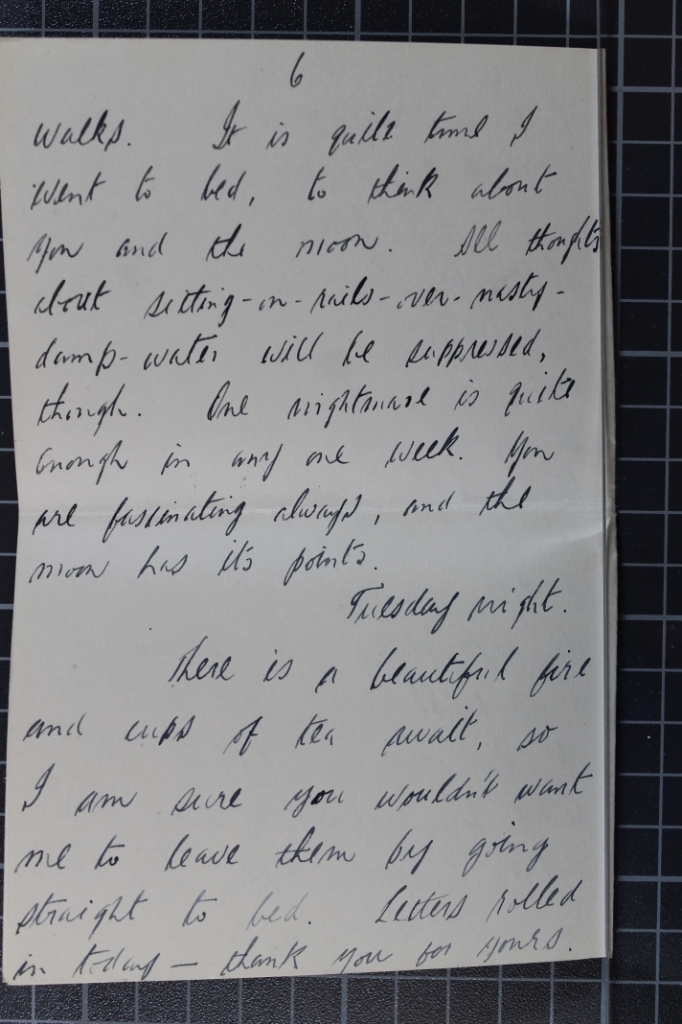 6
walks. It is quite time I
went to bed, to think about
you and the moon. All thoughts
about sitting-on-rails-over-nasty-
damp-water will be suppressed,
though. One nightmare is quite
enough in any one week. You
are fascinating always, and the
moon has its points.
Tuesday night.
There is a beautiful fire
and cups of tea await, so
I am sure you wouldn't want
me to leave them by going
straight to bed. Letters rolled
in today — thank you for yours.